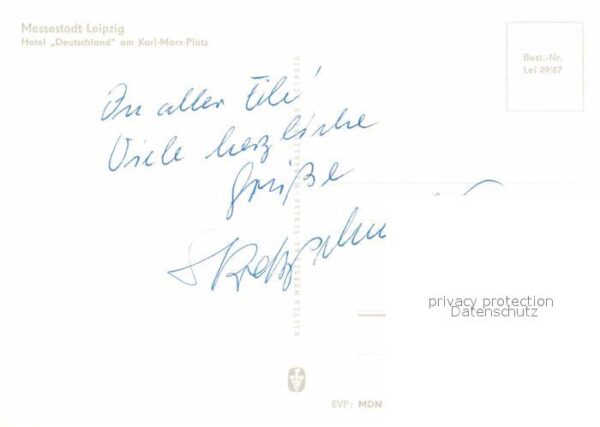 Messestadt Leipzig
Hotel „Deutschland" am Karl-Marx-Platz
Best.-Nr.
Lei 29/67
In aller Eile!
Viele herzliche
Grüße
privacy protection
Datenschutz
EVP: MDN